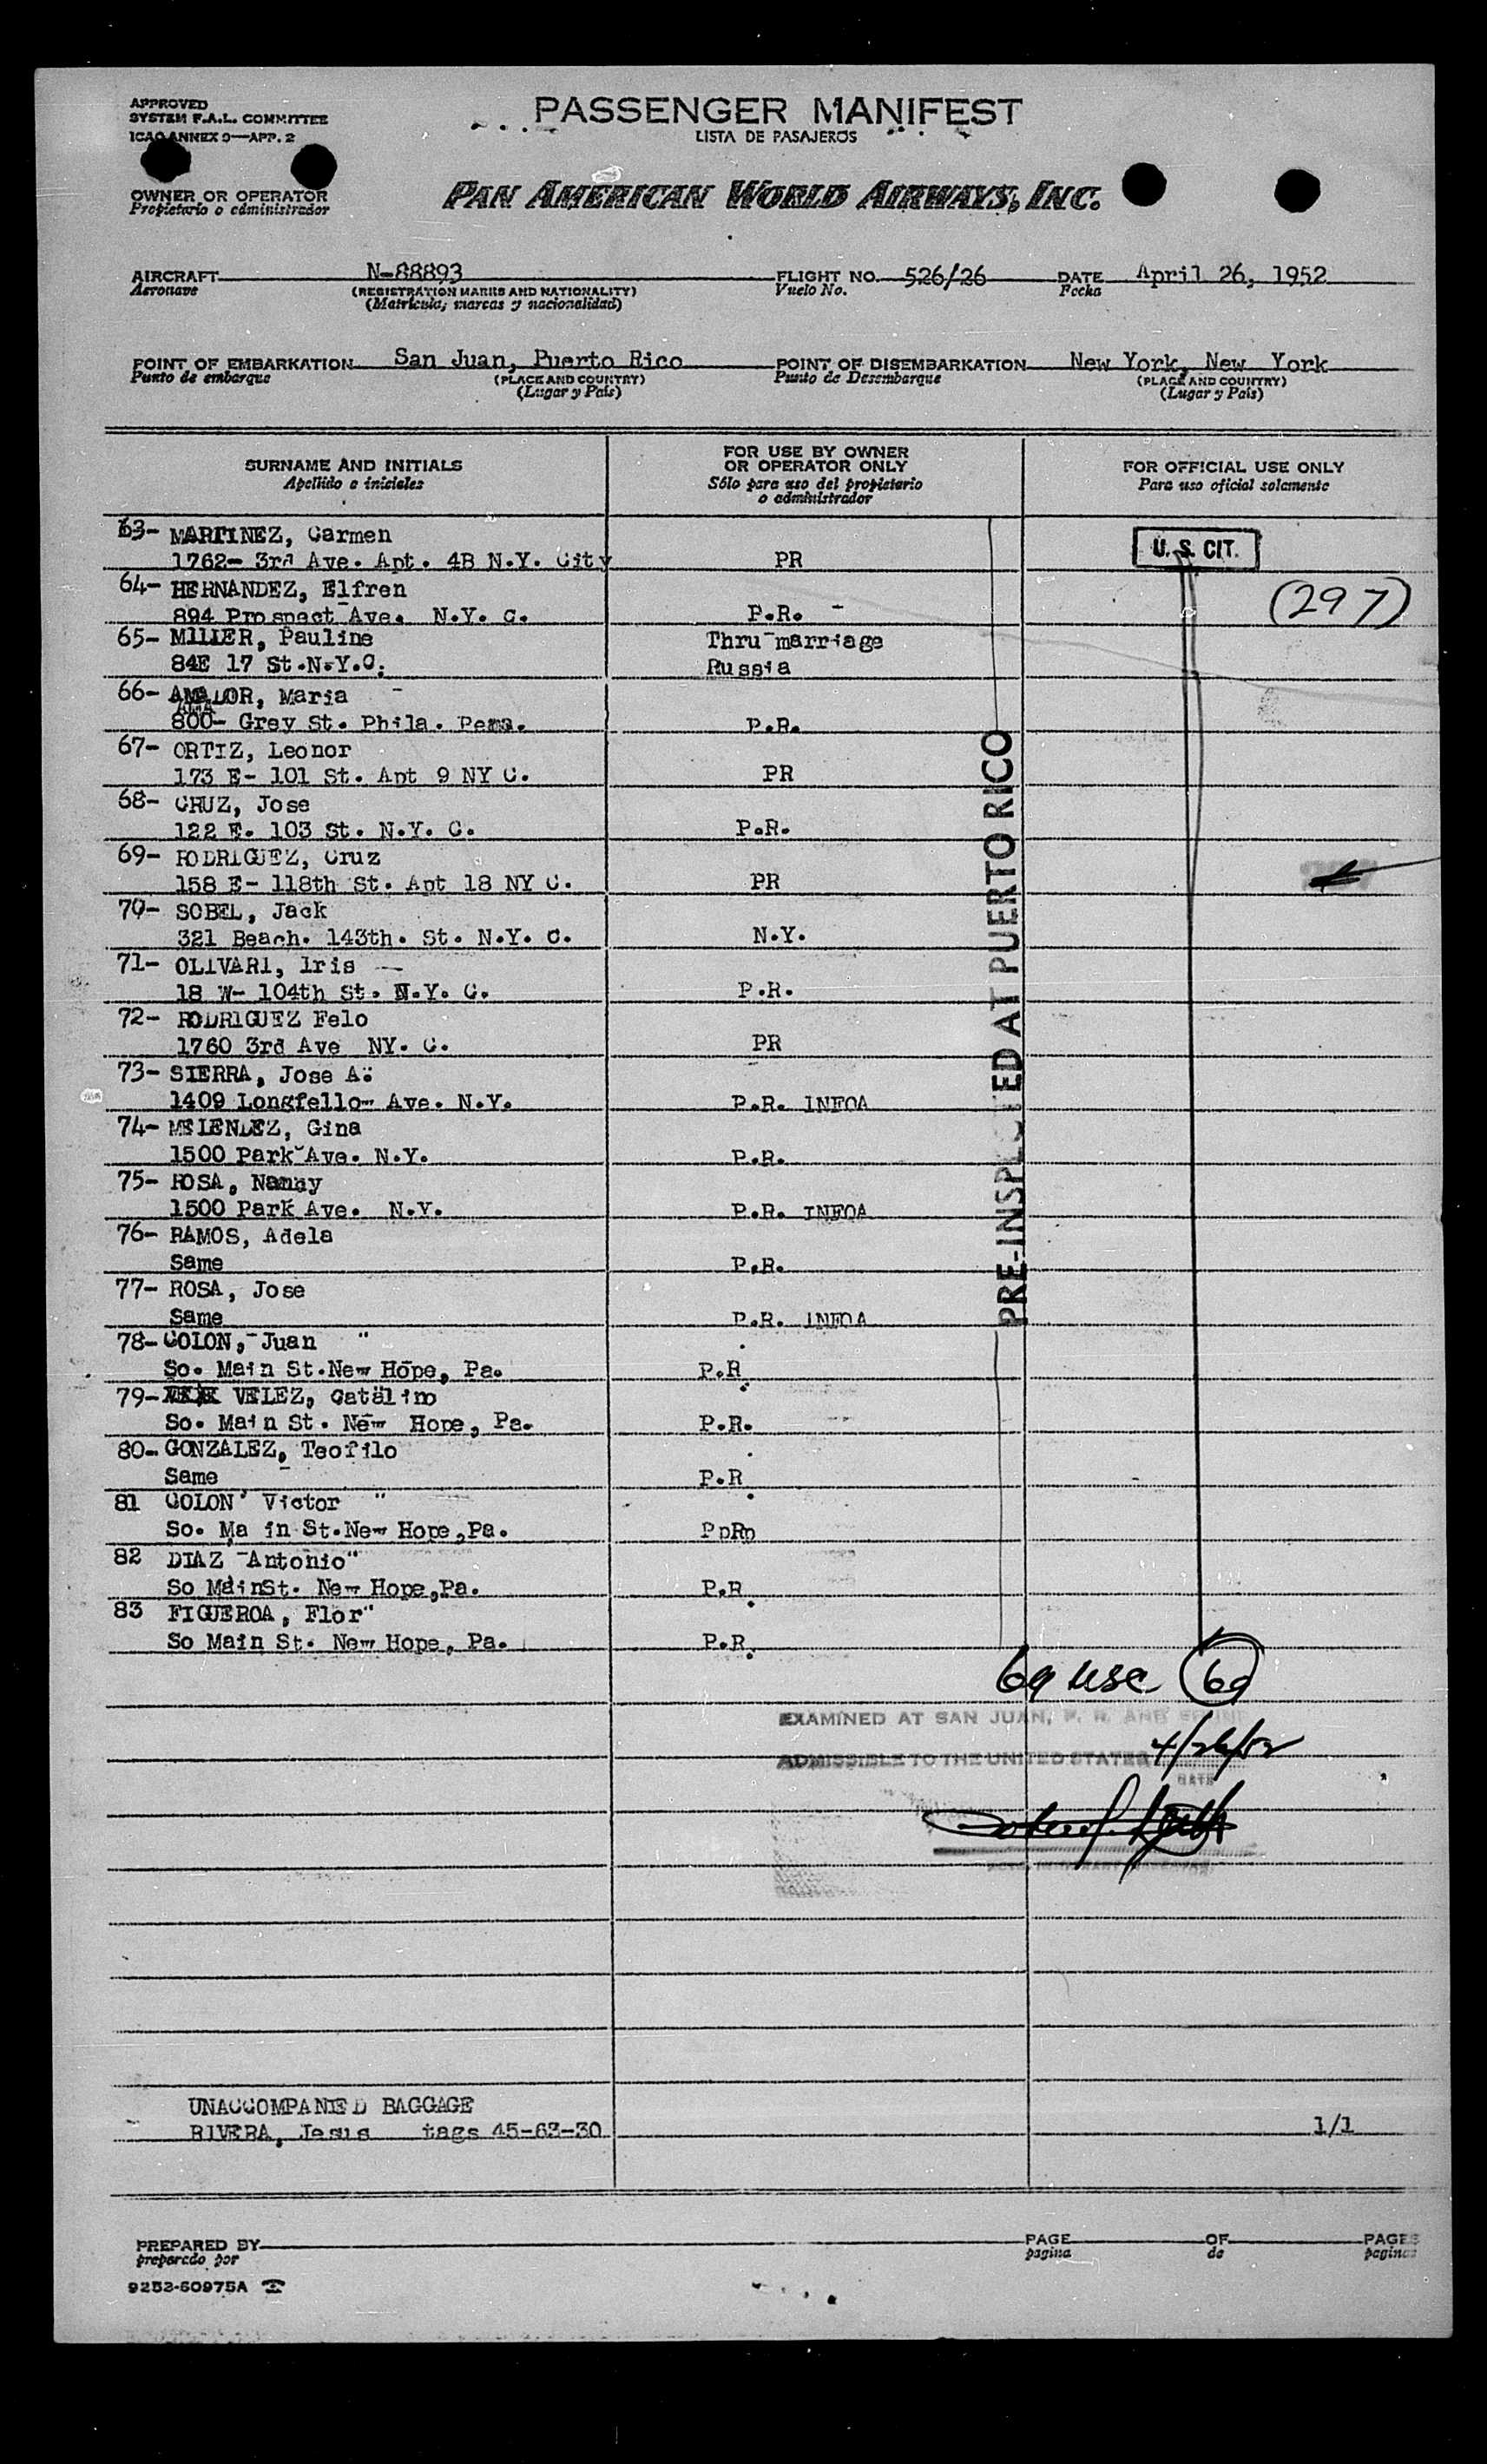 APPROVED
SYSTEM F.A.L. COMMITTEE
ICAO ANNEX 9—APP. 2
PASSENGER MANIFEST
LISTA DE PASAJEROS
OWNER OR OPERATOR
Propietario o administrador
PAN AMERICAN WORLD AIRWAYS, INC.
AIRCRAFT N-88893 FLIGHT NO. 526/26 DATE April 26, 1952
Aeronave (REGISTRATION MARKS AND NATIONALITY) Vuelo No. Fecha
(Matrícula, marcas y nacionalidad)
POINT OF EMBARKATION San Juan, Puerto Rico POINT OF DISEMBARKATION New York, New York
Punto de embarque (PLACE AND COUNTRY) Punto de Desembarque (PLACE AND COUNTRY)
(Lugar y País) (Lugar y País)
SURNAME AND INITIALS FOR USE BY OWNER OR OPERATOR ONLY FOR OFFICIAL USE ONLY
Apellido e iniciales Sólo para uso del propietario o administrador Para uso oficial solamente
63- MARTINEZ, Carmen U. S. CIT.
1762- 3rd Ave. Apt. 4B N.Y. City PR
64- HERNANDEZ, Elfren (297)
894 Prospect Ave. N.Y. C. P.R. -
65- MILLER, Pauline Thru marriage
84E 17 St.N.Y.C. Russia
66- AMALOR, Maria
800- Grey St. Phila. Penna. P.R.
67- ORTIZ, Leonor
173 E- 101 St. Apt 9 NY C. PR
68- CRUZ, Jose
122 E. 103 St. N.Y. C. P.R.
69- RODRIGUEZ, Cruz
158 E- 118th St. Apt 18 NY C. PR
70- SOBEL, Jack
321 Beach. 143th. St. N.Y. C. N.Y.
71- OLIVARI, Iris —
18 W- 104th St. N.Y. C. P.R.
72- RODRIGUEZ Felo
1760 3rd Ave NY. C. PR
73- SIERRA, Jose A.
1409 Longfellow Ave. N.Y. P.R. INFOA
74- MELENDEZ, Gina
1500 Park Ave. N.Y. P.R.
75- ROSA, Nanny
1500 Park Ave. N.Y. P.R. INFOA
76- RAMOS, Adela
Same P.R.
77- ROSA, Jose
Same P.R. INFOA
PRE-INSPECTED AT PUERTO RICO
78- COLON, Juan "
So. Main St.New Hope, Pa. P.R.
79- VELEZ, Catalino
So. Main St. New Hope, Pa. P.R.
80- GONZALEZ, Teofilo
Same P.R.
81 COLON' Victor "
So. Ma in St.New Hope,Pa. PpRp
82 DIAZ Antonio"
So MainSt. New Hope,Pa. P.R.
83 FIGUEROA, Flor"
So Main St. New Hope, Pa. P.R.
69 USC 69
EXAMINED AT SAN JUAN, P. R. AND FOUND
ADMISSIBLE TO THE UNITED STATES 4/26/52
DATE
UNACCOMPANIED BAGGAGE
RIVERA, Jesus tags 45-63-30 1/1
PREPARED BY PAGE OF PAGES
preparado por página de páginas
9252-60975A